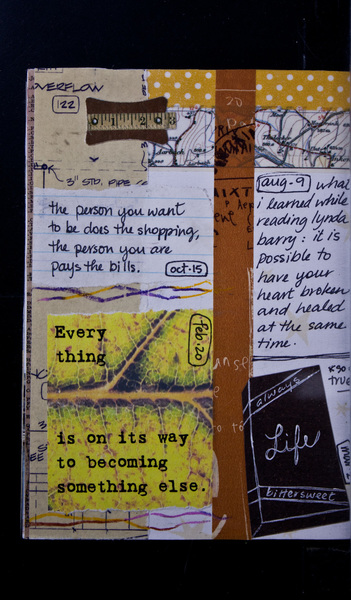 OVERFLOW
122
3" STD. PIPE
the person you want
to be does the shopping,
the person you are
pays the bills.
oct.15
Every
thing
feb.20
is on its way
to becoming
something else.
20
MIXT
aug.9 what
i learned while
reading lynda
barry: it is
possible to
have your
heart broken
and healed
at the same
time.
always
Life
bittersweet
true